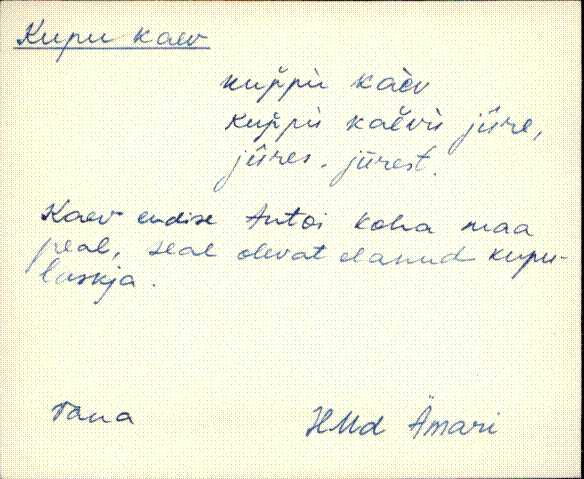 Kupu kaev
kup̆pù kàev
kup̆pù kaĕvù jūre,
jūres. jūrest.
Kaev endise Antoi koha maa
peal, seal olevat elanud kupu-
laskja.
HMd Ämari